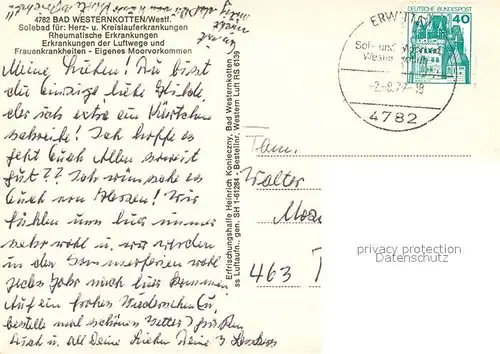 4782 BAD WESTERNKOTTEN/Westf.
Solebad für: Herz- u. Kreislauferkrankungen
Rheumatische Erkrankungen
Erkrankungen der Luftwege und
Frauenkrankheiten - Eigenes Moorvorkommen
Meine Du bist
die einzige liebe Hilde
der ich extra ein Kärtchen
schreibe! Ich hoffe es
geht Euch Allen soweit
gut?? Ich wünsche es
Euch von Herzen! Wir
fühlen uns hier immer
sehr wohl u. wir werden
in den Sommerferien wohl
jedes Jahr nach hier kommen
Auf ein frohes Wiedersehen
bestelle mal schönes Wetter
Euch u. all Deine Lieben Deine 3
Erfrischungshalle Heinrich Konieczny, Bad Westernkotten
ss Luftaufn., gen. SH 1-61284 - Bestellnr. Western Luft RS 6139
DEUTSCHE BUNDESPOST
40
ERWITTE
Sole- und
-2.-8.77-18
4782
Fam.
Walter
463
privacy protection
Datenschutz